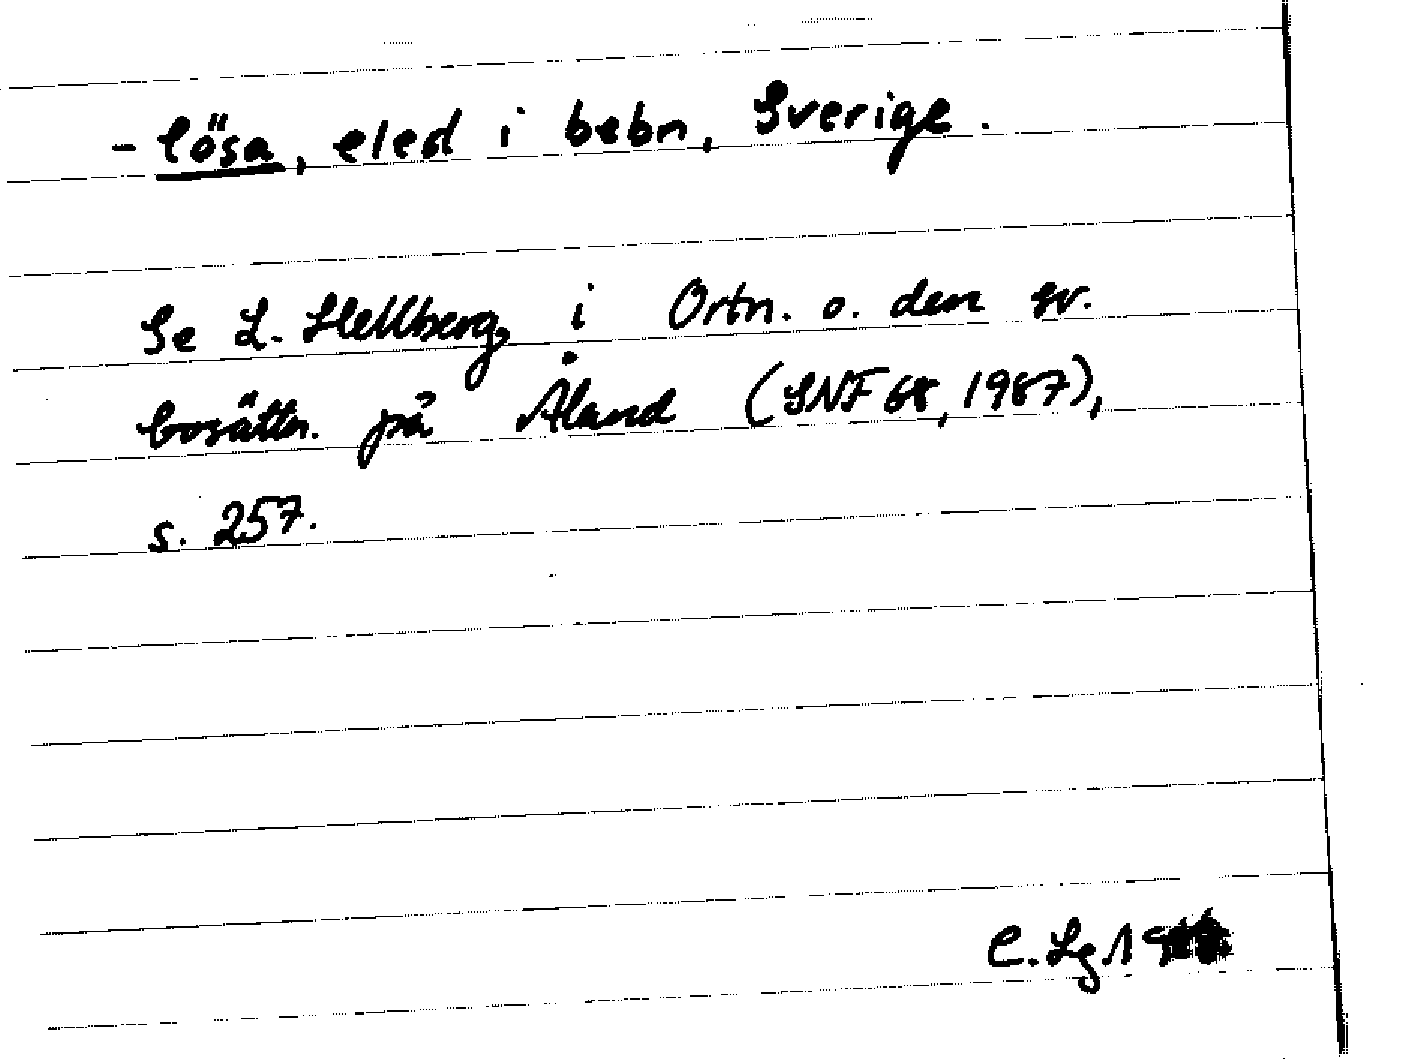 -lösa, eled i bebn, Sverige.
Se L. Hellberg i Ortn. o. den sv.
bosättn. på Åland (SNF 68, 1987),
s. 257.
C. Lg